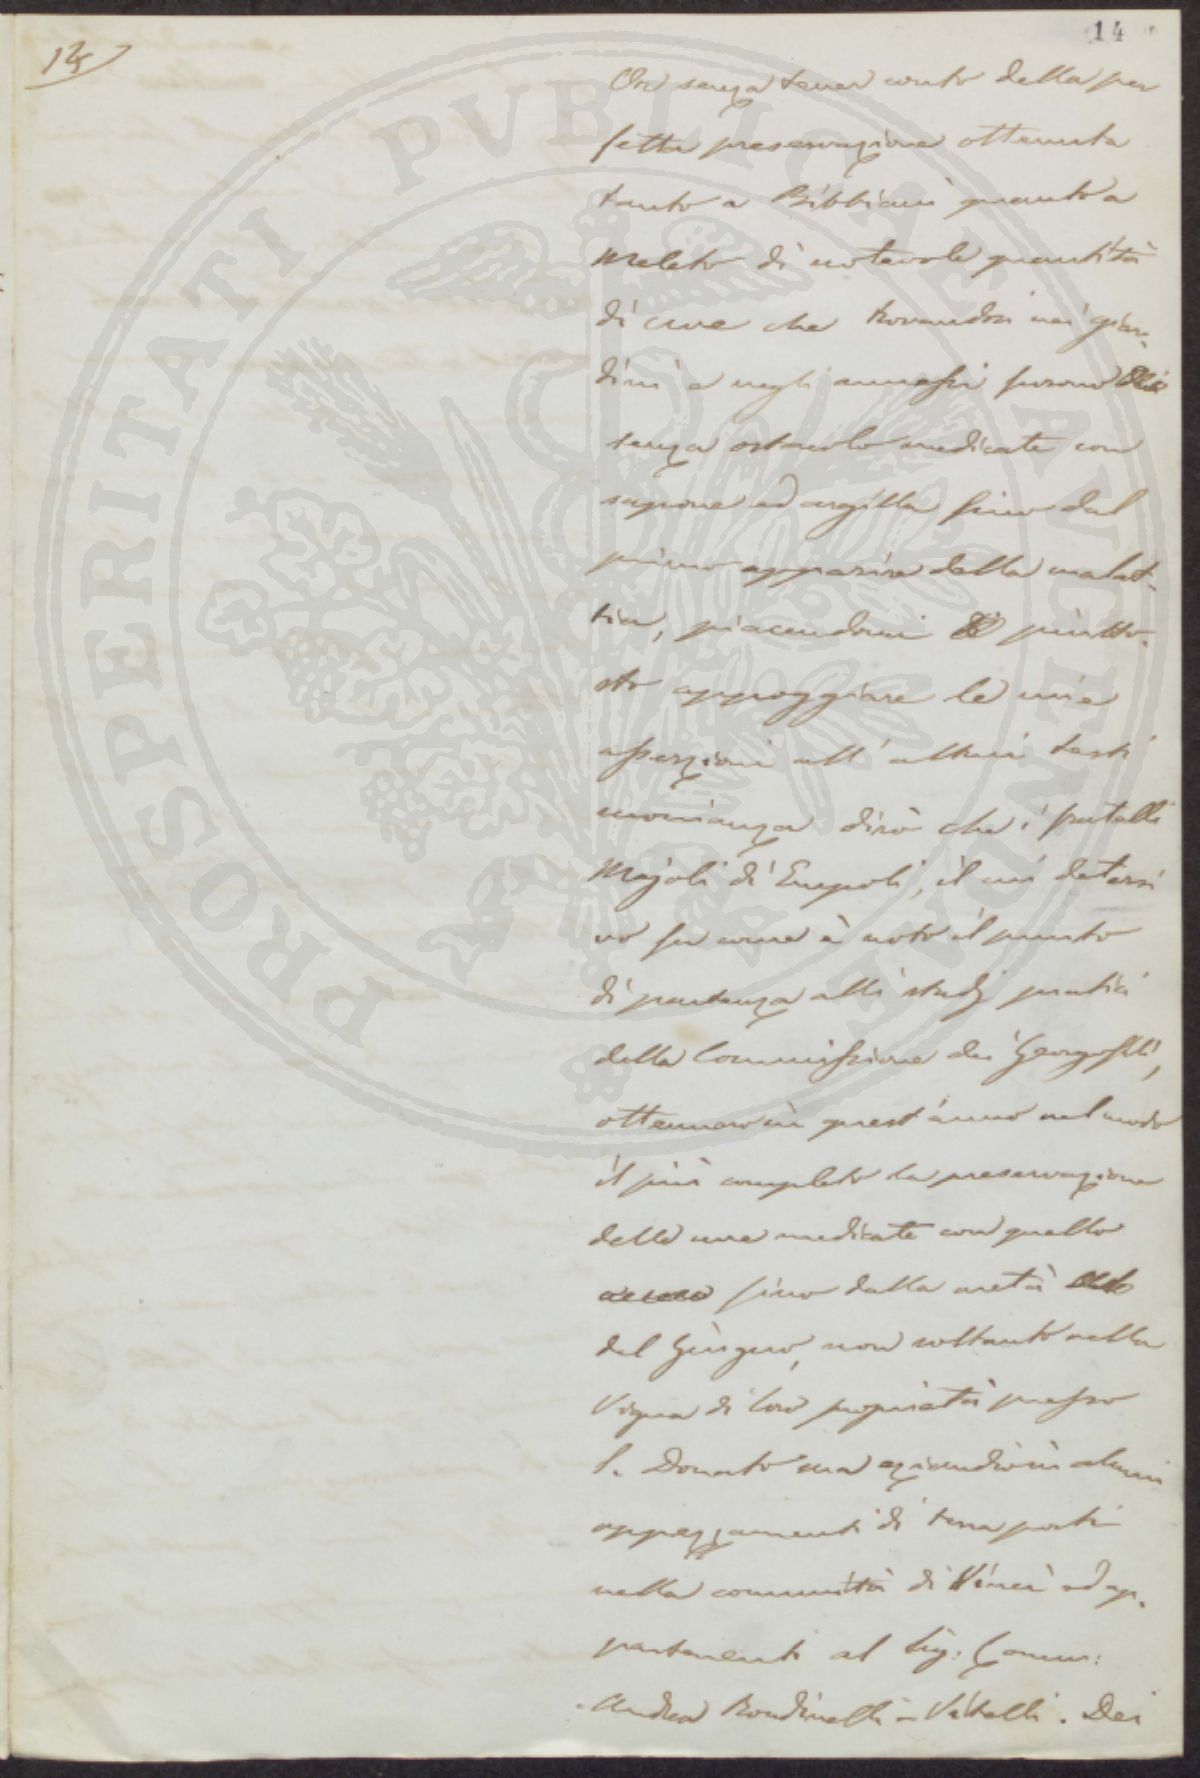 14
14
Or senza tener conto della per
fetta preservazione ottenuta
tanto a Bibbiani quanto a
Meleto di notevole quantità
di uve che trovandosi nei giar-
dini e negli annessi furono
senza ostacolo medicate con
sapone ed argilla fino dal
primo apparire della malat-
tia, piacendomi piutto-
sto appoggiare le mie
asserzioni all'altrui testi
monianza dirò che i fratelli
Majoli di Empoli, il cui detersi
vo fu come è noto il punto
di partenza alli studj pratici
della Commissione dei Georgofili,
ottennero in quest'anno nel modo
il più completo la preservazione
delle uve medicate con quello
fino dalla metà
del Giugno, non soltanto nella
Vigna di loro proprietà presso
S. Donato ma eziandio in alcuni
appezzamenti di terra posti
nella comunità di Vinci ed ap-
partenenti al Sig: Comm:
Andrea Rondinelli-Vitelli. Dei
PROSPERITATI PUBLICAE AUGENDAE